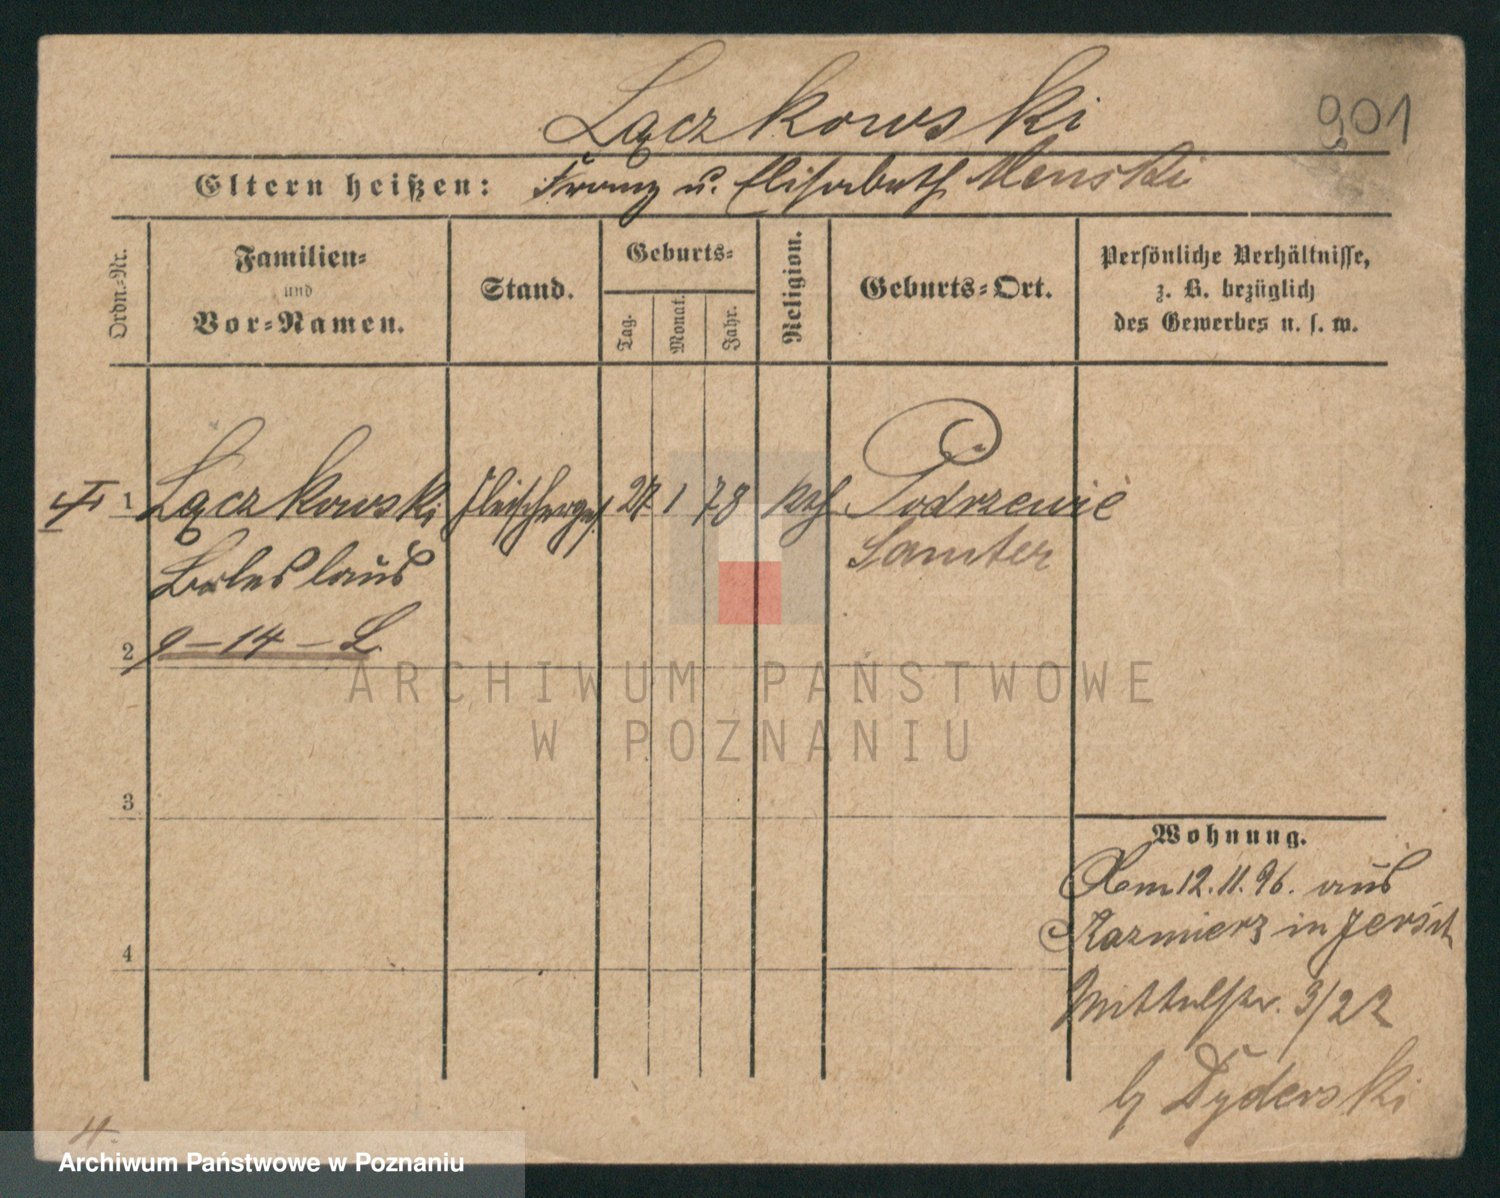 Łączkowski
901
Eltern heißen: Franz u. Elisabeth Menski
Ordn.-Nr.
Familien-
und
Vor-Namen.
Stand.
Geburts-
Tag.
Monat.
Jahr.
Religion.
Geburts-Ort.
Persönliche Verhältnisse,
z. B. bezüglich
des Gewerbes u. s. w.
1 Łączkowski Fleischerges. 27. 1 78 kath Podrzewie
Samter
Boleslaus
9-14-L
2
3
4
Wohnung.
12.11.96. aus
Kazmierz in Jersitz
Mittelstr. 3/22
b/ Dyderski
ARCHIWUM PAŃSTWOWE
W POZNANIU
Archiwum Państwowe w Poznaniu